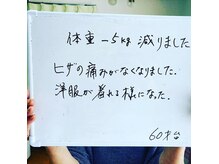 体重 −5kg 減りました
ヒザの痛みがなくなりました.
洋服が着れる様になった.
60才台